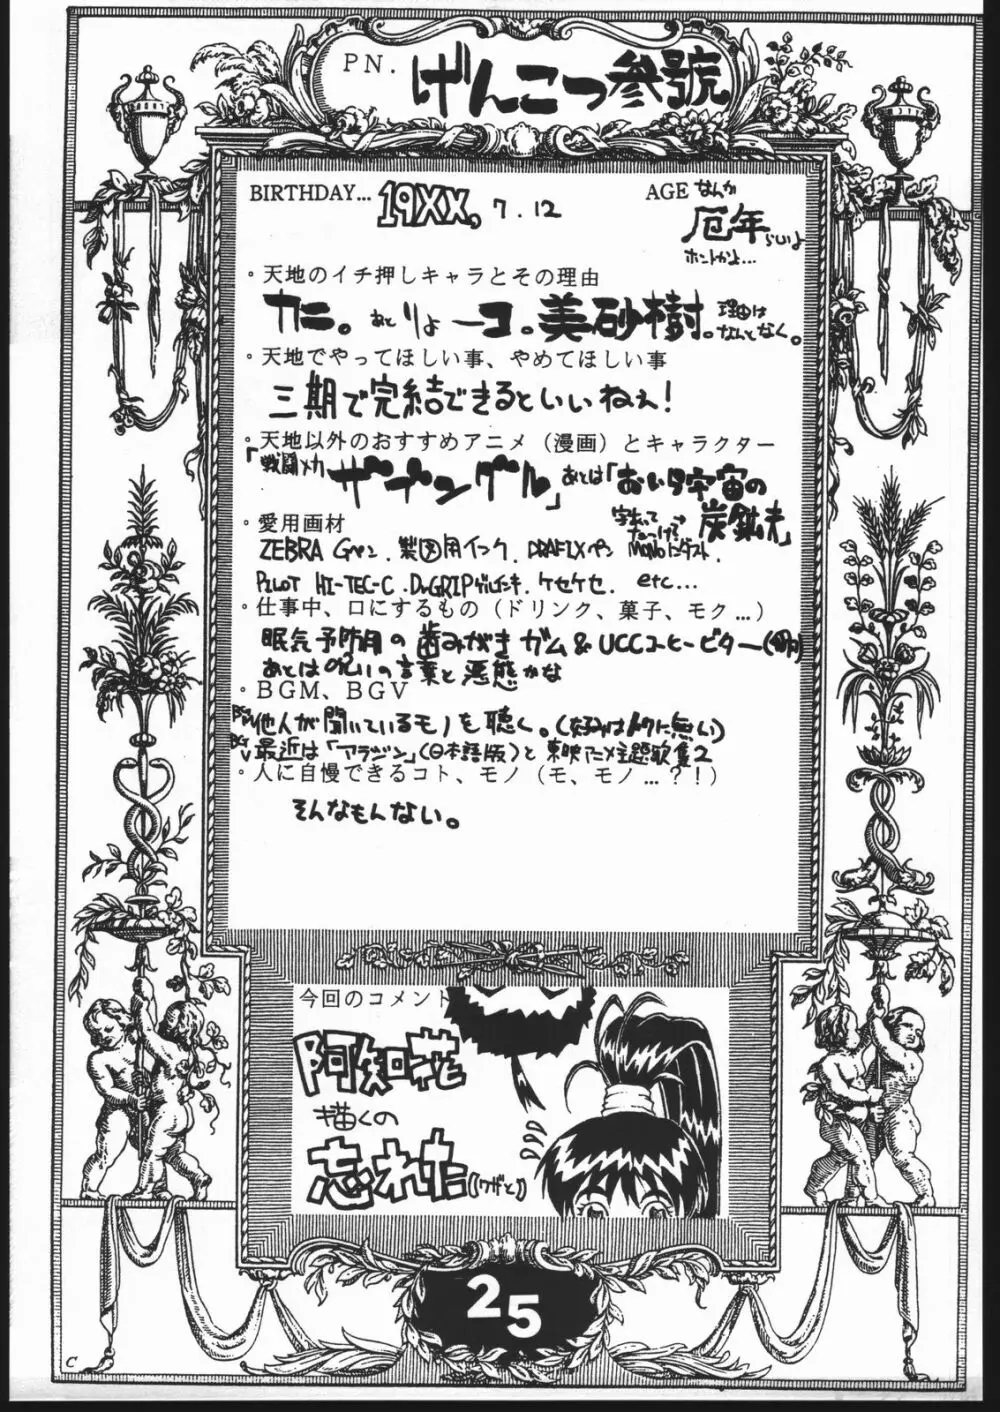 PN. げんこつ参號
BIRTHDAY... 19XX, 7.12
AGE なんか
厄年らしいよ
ホントかよ...
・天地のイチ押しキャラとその理由
カニ。あとりょーコ。美砂樹。理由は
なんとなく。
・天地でやってほしい事、やめてほしい事
三期で完結できるといいねぇ!
・天地以外のおすすめアニメ(漫画)とキャラクター
「戦闘メカ ザブングル」あとは「おいら宇宙の
炭鉱夫」
・愛用画材
ZEBRA Gペン. 製図用インク. DRAFIXペン MONO
PILOT HI-TEC-C. Dr.GRIPゲルインキ. ケセケセ. etc...
・仕事中、口にするもの(ドリンク、菓子、モク...)
眠気予防用の歯みがきガム & UCCコーヒービター
あとは呪いの言葉と悪態かな
・BGM、BGV
BGM/他人が聞いているモノを聴く。(好みは特に無い)
BGV 最近は「アラジン」(日本語版)と東映アニメ主題歌集2
・人に自慢できるコト、モノ(モ、モノ...?!)
そんなもんない。
今回のコメント
阿知花
描くの
忘れた((ワザと))
25
C